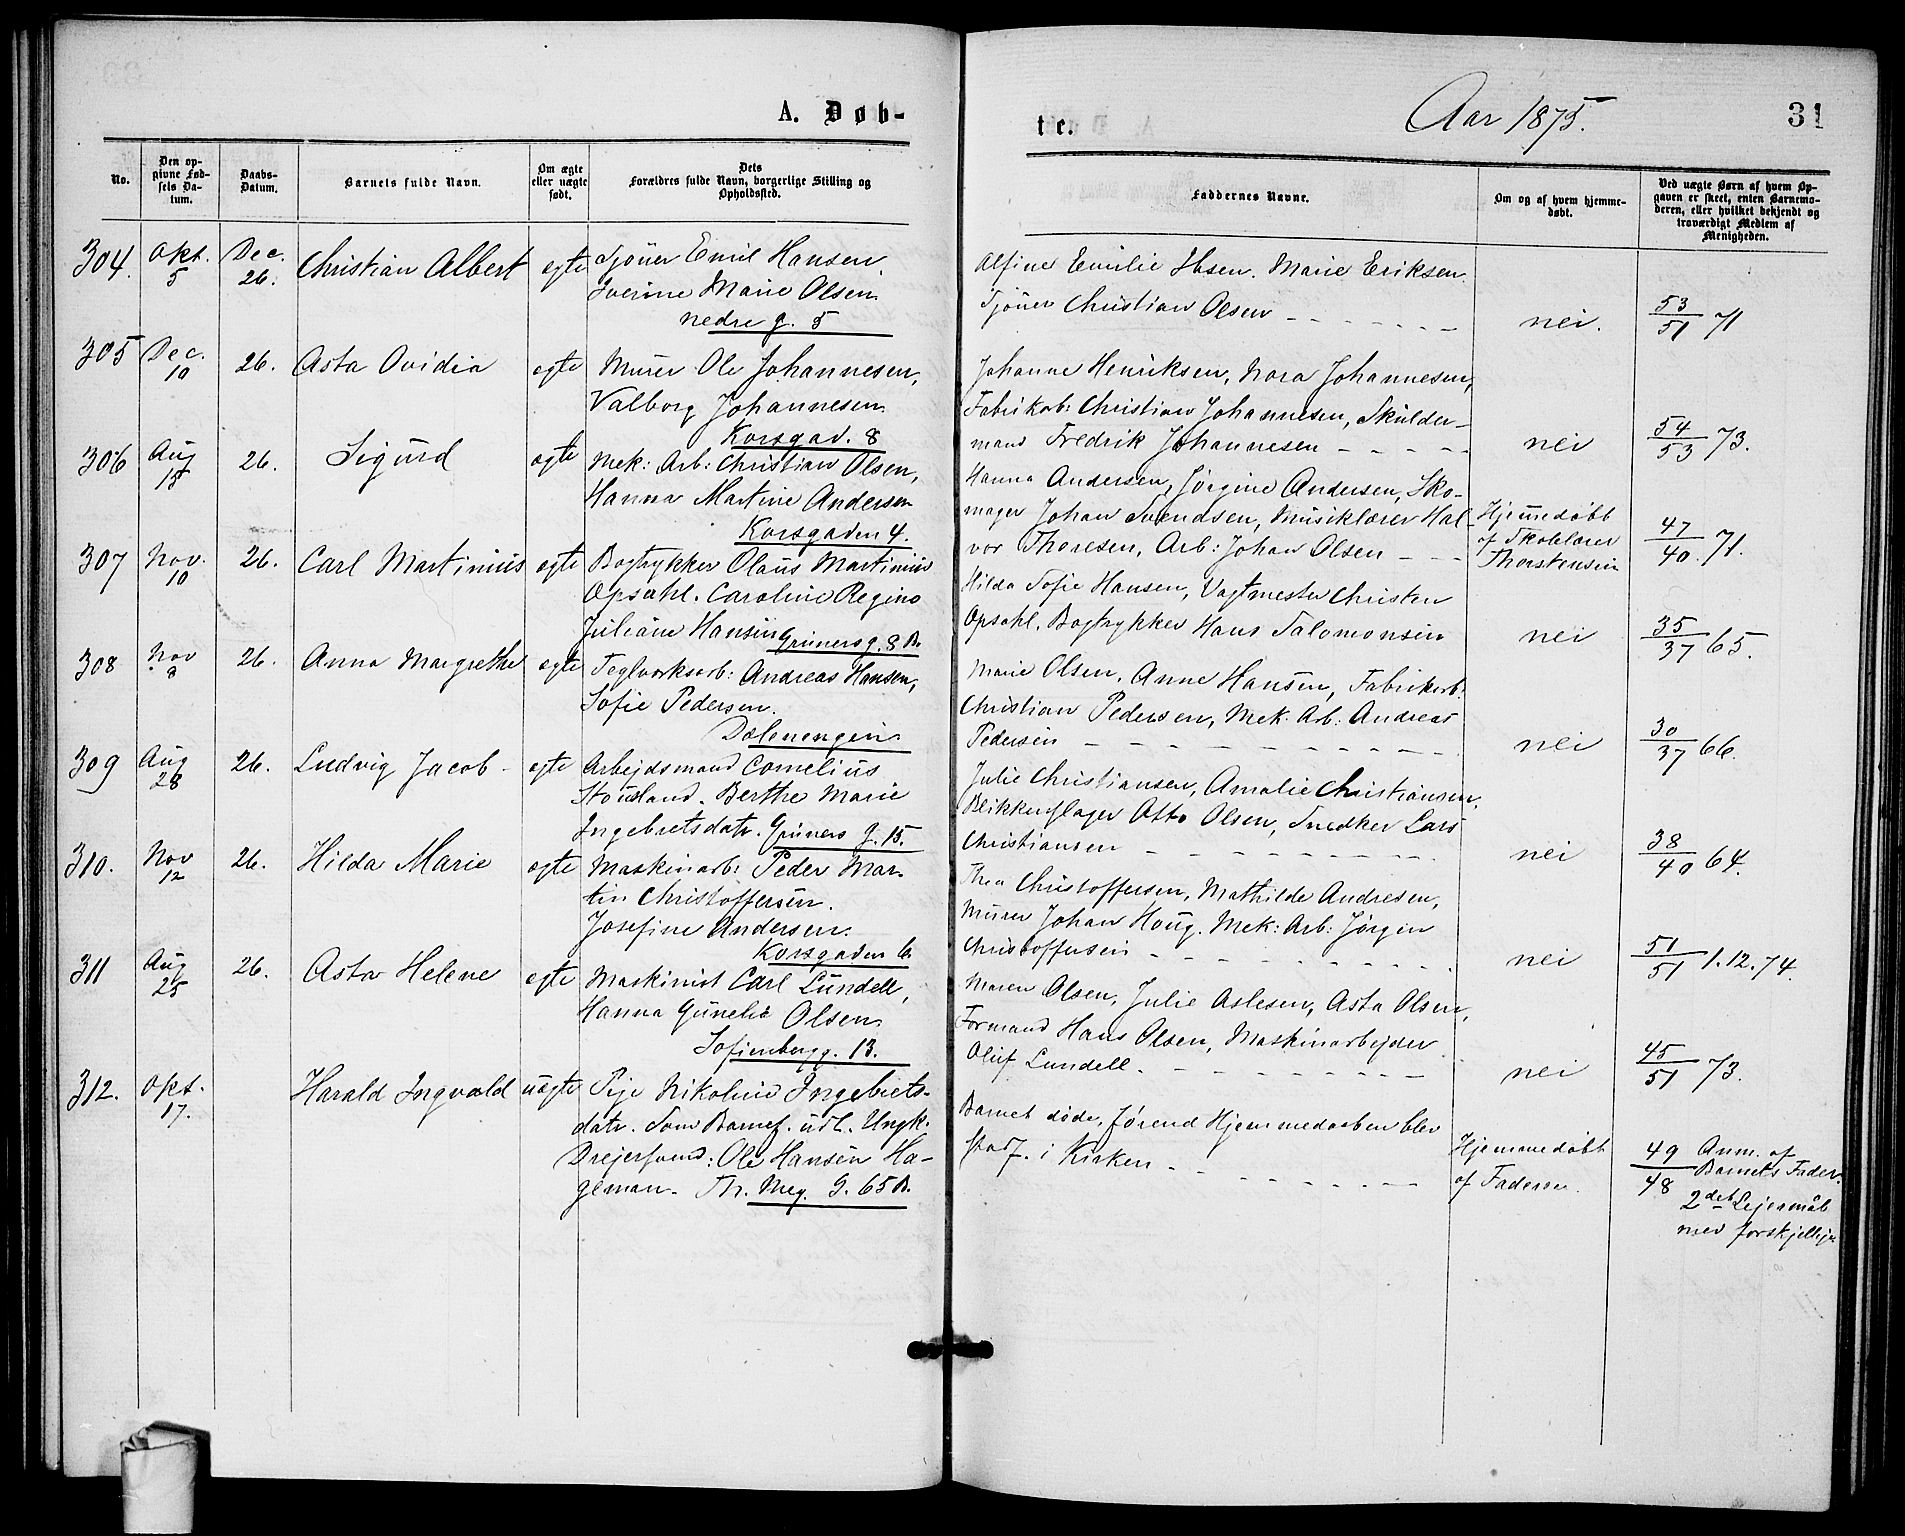 A. Døb-
te.
Aar 1875.
31
No.
Den op-
givne Fød-
sels Da-
tum.
Daabs-
Datum.
Barnets fulde Navn.
Om ægte
eller uægte
født.
Dets
Forældres fulde Navn, borgerlige Stilling og
Opholdssted.
Faddernes Navne.
Om og af hvem hjemme-
døbt.
Ved uægte Børn af hvem Op-
gaven er skeet, enten Barnemo-
deren, eller hvilket bekjendt og
troværdigt Medlem af
Menigheden.
304. Okt. 5 Dec. 26. Christian Albert egte
Emil Hansen
Marie Olsen
nedre g. 5
Alfine Emilie Ibsen. Marie Eriksen
Christian Olsen
nei.
53/51 71
305 Dec. 10 26. Asta Ovidia egte
Murer Ole Johannesen,
Valborg Johannesen
Korsgad. 8
Johanne Henriksen, Nora Johannesen,
Fabrikarb: Christian Johannesen, Skulder-
mand Fredrik Johannesen
nei
54/53 73.
306 Aug 15 26. Sigurd egte
Mek: Arb: Christian Olsen,
Hanna Martine Andersen
Korsgaden 4.
Hanna Andersen, Jørgine Andersen, Sko-
mager Johan Svendsen, Musiklærer Hal-
vor Thoresen, Arb: Johan Olsen
Hjemmedøbt
af Skolelærer
Thorstensen
47/40. 71.
307 Nov. 10 26. Carl Martinius egte
Bogtrykker Olaus Martinius
Opsahl. Caroline Regine
Juliane Hansen Grüners g. 8 B.
Hilda Sofie Hansen, Vagtmester Christen
Opsahl. Bogtrykker Hans Salomonsen
nei
35/37 65.
308 Nov 8 26. Anna Margrethe egte
Teglverksarb: Andreas Hansen,
Sofie Pedersen.
Dælenengen
Marie Olsen, Anne Hansen, Fabrikarb.
Christian Pedersen, Mek. Arb: Andreas
Pedersen
nei
30/37 66.
309 Aug 28 26. Ludvig Jacob egte
Arbejdsmand Cornelius
Stousland. Berthe Marie
Ingebretsdatr. Grüners g. 15.
Julie Christiansen, Amalie Christiansen.
Blikkenslager Otto Olsen, Snedker Lars
Christiansen
nei
38/40 64.
310. Nov 12 26. Hilda Marie egte
Maskinarb: Peder Mar-
tin Christoffersen.
Josefine Andersen.
Korsgaden 6.
Thea Christoffersen, Mathilde Andresen,
Murer Johan Houg. Mek: Arb: Jørgen
Christoffersen
nei
51/51 1.12.74.
311 Aug 25 26. Asta Helene egte
Maskinist Carl Lundell,
Hanna Gunelie Olsen.
Sofienbergg. 13.
Maren Olsen, Julie Aslesen, Asta Olsen,
Formand Hans Olsen, Maskinarbejder
Oluf Lundell.
nei
45/51 73.
312. Okt. 17. Harald Ingvald uegte
Pige Nikoline Ingebrets-
datr. Som Barnef. udl. Ungk.
Drejersvend: Ole Hansen Ha-
geman. Th. Meg. G. 65 B.
Barnet døde, førend Hjemmedaaben blev
stadf. i Kirken
Hjemmedøbt
af Faderen.
49/48 Anm. af
Barnets Fader.
2det Lejermål
med forskjellige